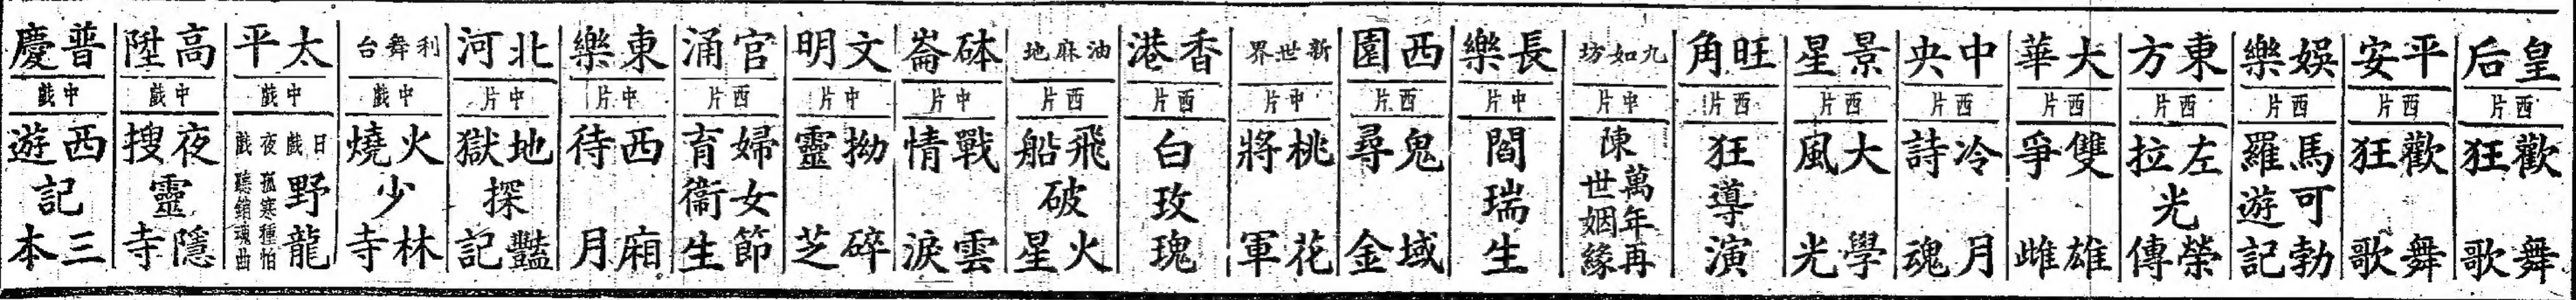 皇后 西片 歡舞狂歌
平安 西片 歡舞狂歌
娛樂 西片 馬可勃羅遊記
東方 西片 左拉光榮傳
大華 西片 雙雄爭雌
中央 西片 冷月詩魂
景星 西片 大學風光
旺角 西片 狂導演
九如坊 中片 陳萬年再世姻緣
長樂 中片 閻瑞生
西園 西片 鬼域尋金
新世界 中片 桃花將軍
香港 西片 白玫瑰
油麻地 西片 飛船破火星
砵崙 中片 戰雲情淚
文明 中片 拗碎靈芝
官涌 西片 婦女節育衞生
東樂 中片 西廂待月
北河 中片 地獄探豔記
利舞台 中戲 火燒少林寺
太平 中戲 日戲 野龍 夜戲 孤寒種拍聽銷魂曲
高陞 中戲 夜搜靈隱寺
普慶 中戲 西遊記三本